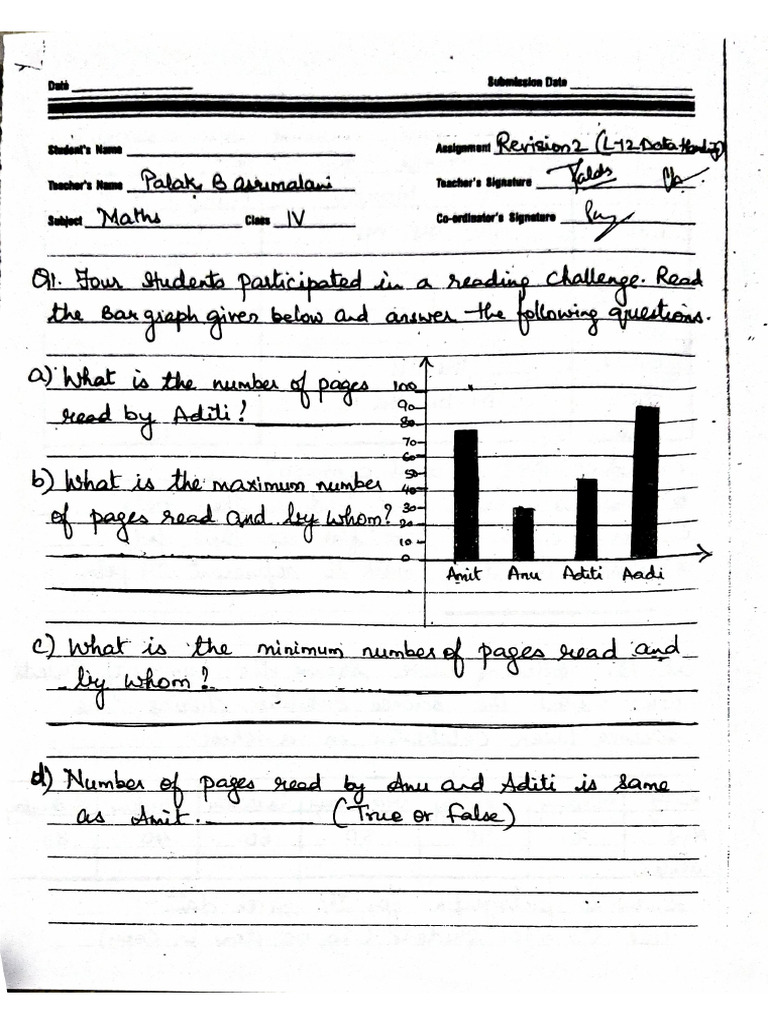 Date
Submission Date
Student's Name
Assignment Revision 2 (L-12 Data Handling)
Teacher's Name Palak Bassumalani
Teacher's Signature
Subject Maths Class IV
Co-ordinator's Signature
Q1. Four students participated in a reading challenge. Read
the Bar graph given below and answer the following questions.
a) What is the number of pages
read by Aditi?
b) What is the maximum number
of pages read and by whom?
100
90
80
70
60
50
40
30
20
10
0
Amit Anu Aditi Aadi
c) What is the minimum number of pages read and
by whom?
d) Number of pages read by Anu and Aditi is same
as Amit. (True or False)